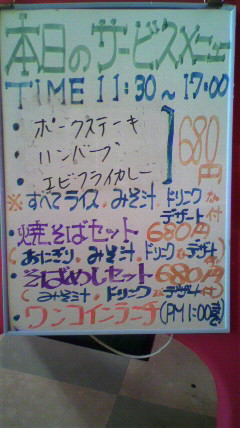 本日のサービスメニュー
TIME 11:30〜17:00
・ポークステーキ
・ハンバーグ
・エビフライカレー
680円
※すべてライス・みそ汁・ドリンク
デザート付
・焼そばセット 680円
(おにぎり・みそ汁・ドリンク デザート付)
・そばめしセット 680円
(みそ汁・ドリンク デザート付)
・ワンコインランチ(PM1:00まで)